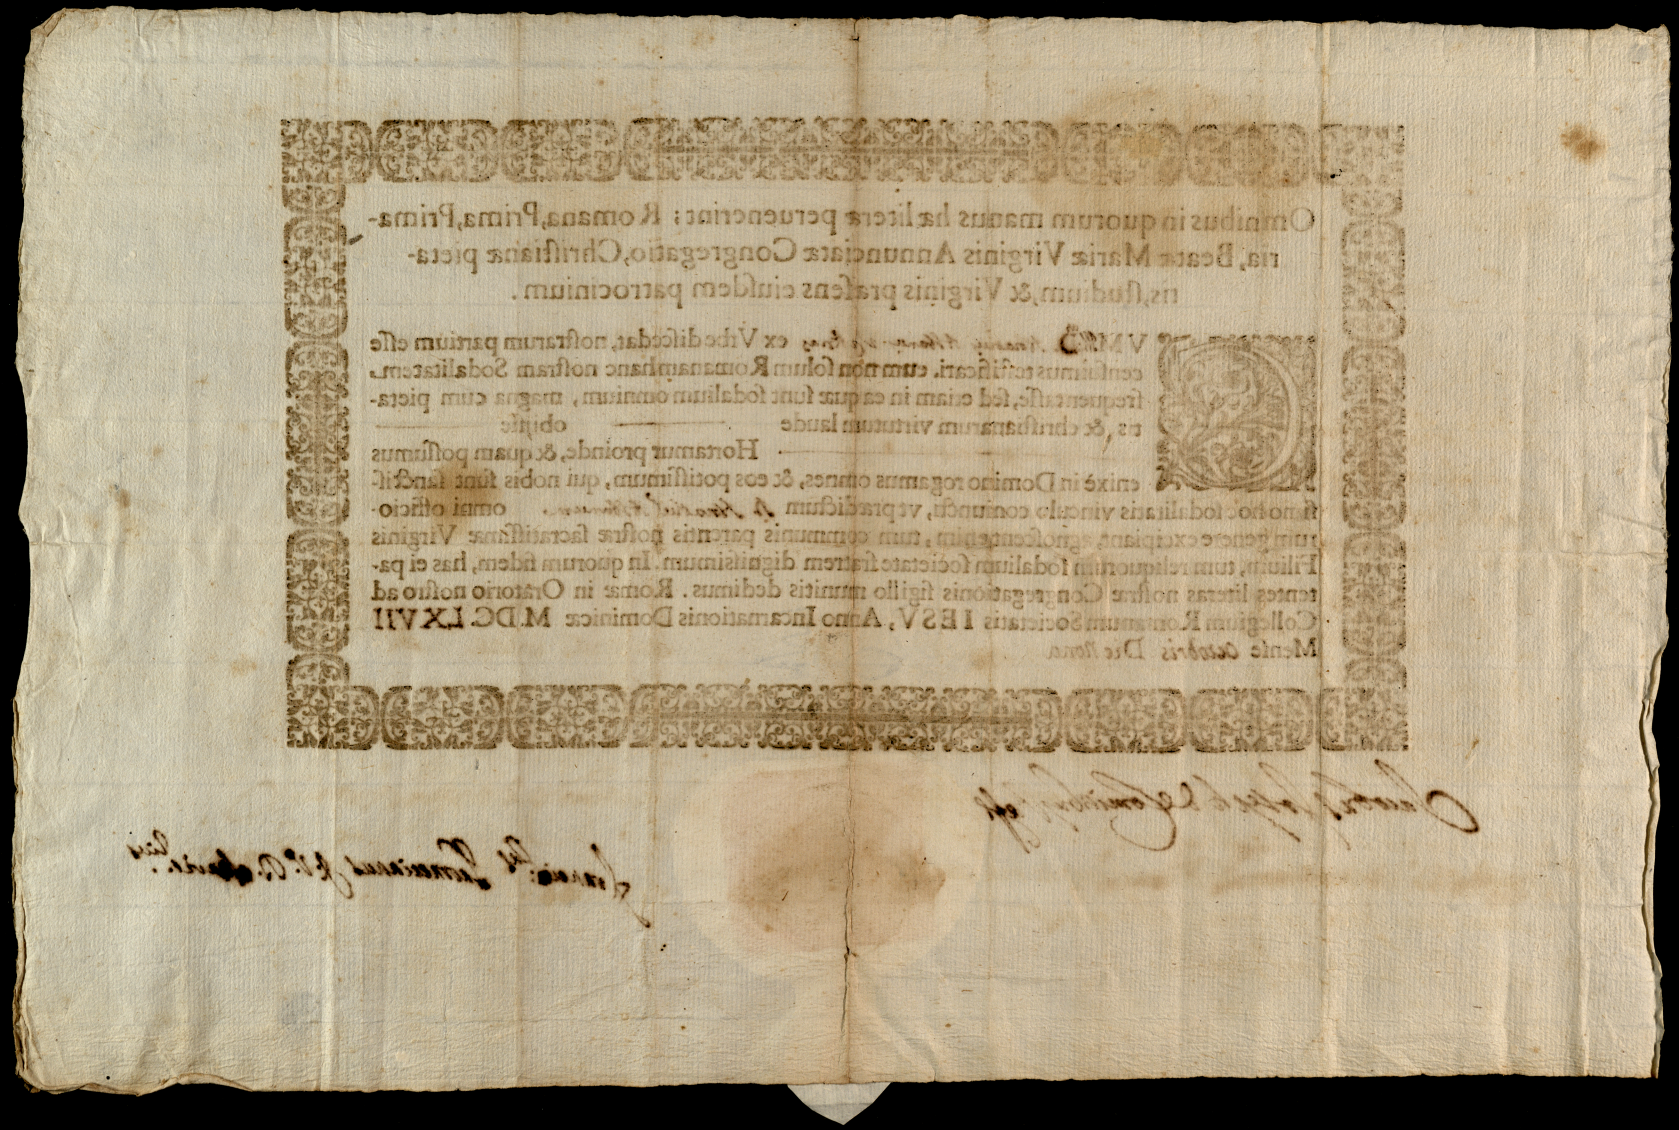 Omnibus in quorum manus hæ literæ peruenerint; Romana, Prima, Prima-
ria, Beatæ Mariæ Virginis Annunciatæ Congregatio, Christianæ pieta-
tis, studium, & Virginis præsens eiusdem patrocinium.
CVM ex Vrbe discedat, nostrarum partium esse
censuimus testificari, eum non solum Romanam hanc nostram Sodalitatem
frequentasse, sed etiam in ea quæ sunt sodalium omnium, magna cum pieta-
tis, & christianarum virtutum laude obijsse
Hortamur proinde, & quam possumus
enixè in Domino rogamus omnes, & eos potissimum, qui nobis sunt sanctis-
simo hoc sodalitatis vinculo coniuncti, vt prædictum omni officio-
rum genere excipiant, agnoscentque, tum communis parentis nostræ sacratissimæ Virginis
Filium, tum reliquorum sodalium societate fratrem dignissimum. In quorum fidem, has ei pa-
tentes literas nostræ Congregationis sigillo munitis dedimus. Romæ in Oratorio nostro ad
Collegium Romanum Societatis IESV, Anno Incarnationis Dominicæ M.DC.LXVII
Mense Octobris Die Nona